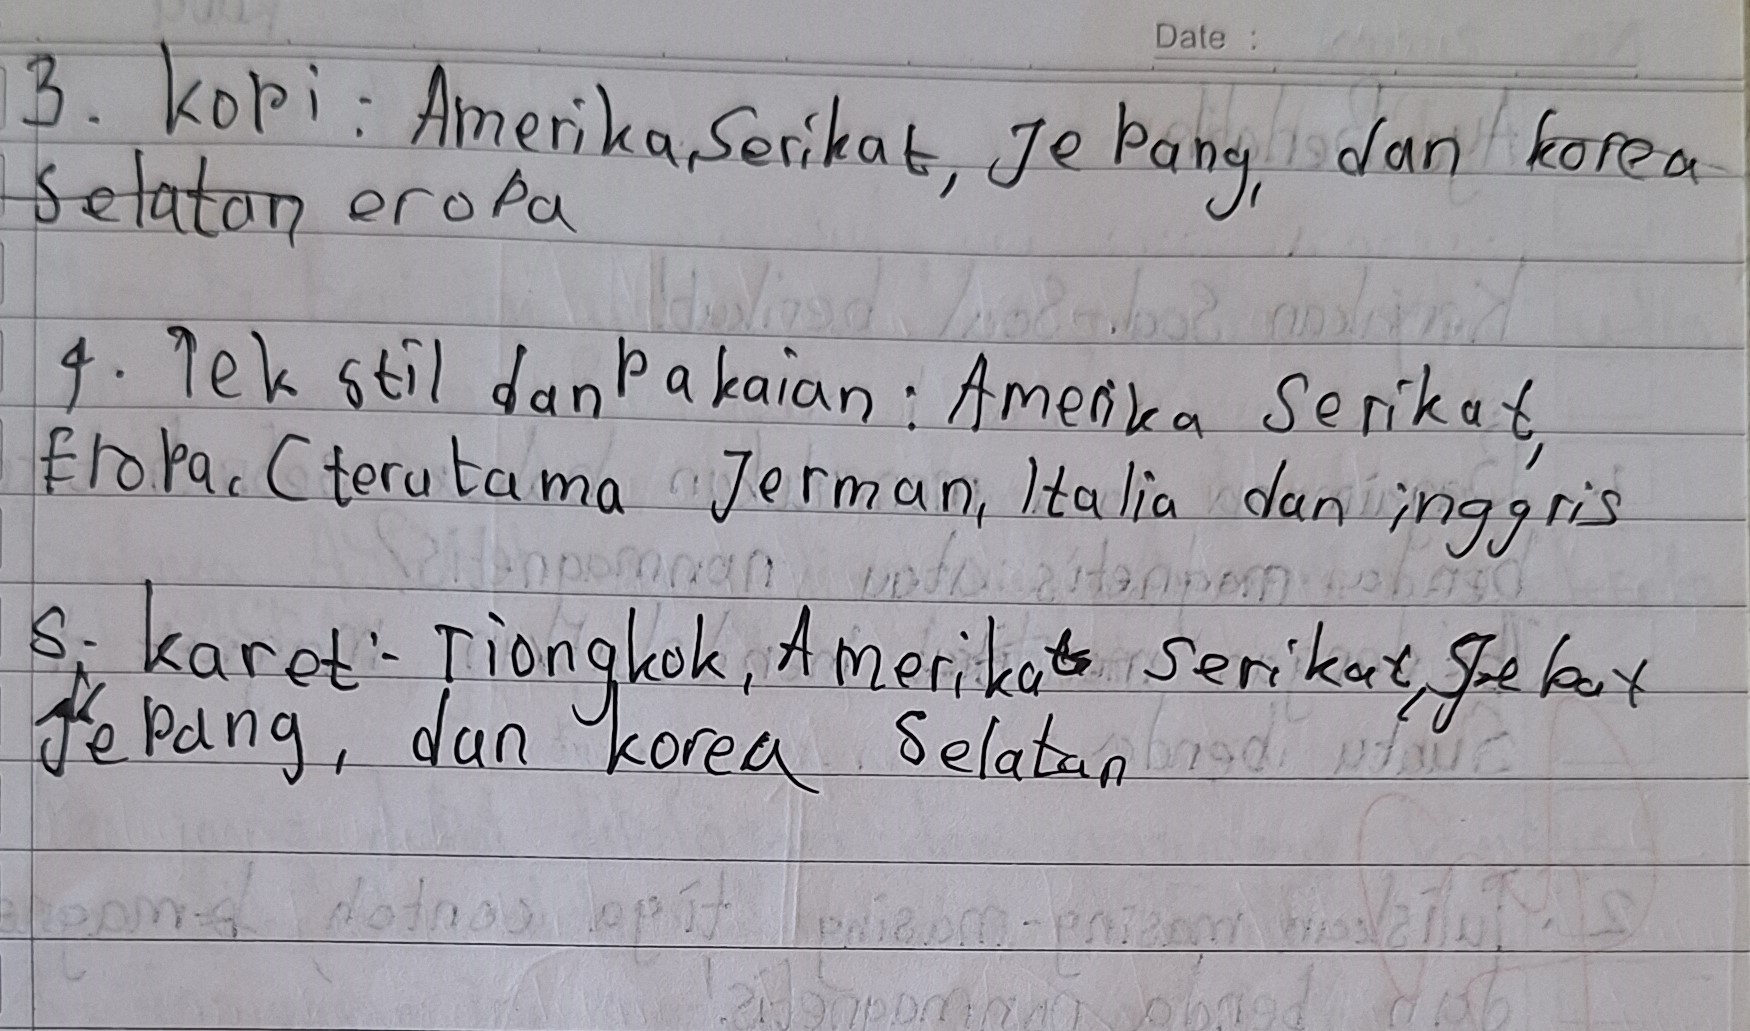 Date :
3. kopi : Amerika Serikat, Jepang, dan korea
selatan eropa
4. Tek stil dan Pakaian : Amerika Serikat,
Eropa. (terutama Jerman, Italia dan inggris
5. karet :- Tiongkok, Amerika Serikat,
Jepang, dan korea Selatan